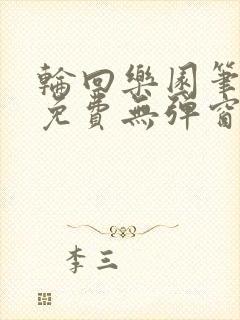 輪回樂園筆
免費無彈窗
李三